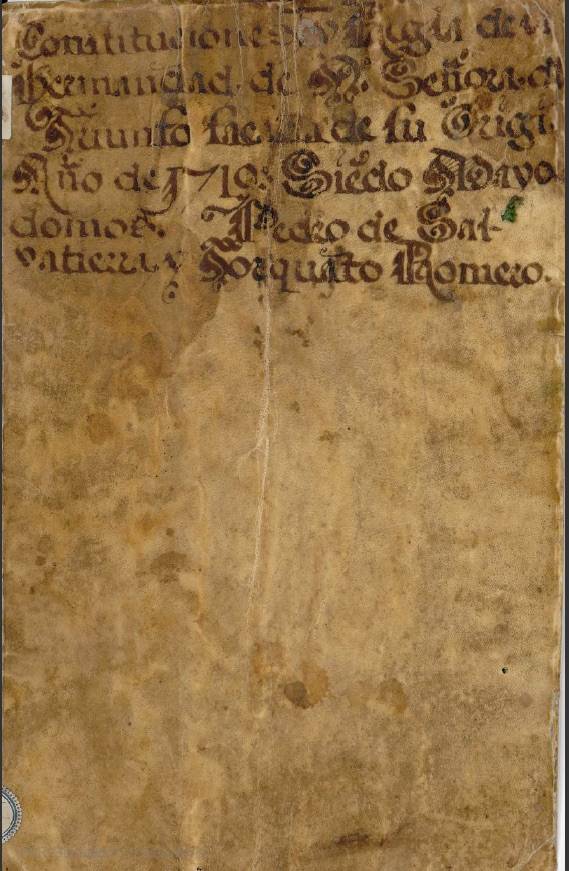 Constituciones, y Regla de la
Hermandad de Nª. Señora d
Triunfo de su Origẽ.
Año de 1719. Siẽdo Mayor
domos, Pedro de Sal-
vatierra y Torquato Romero.